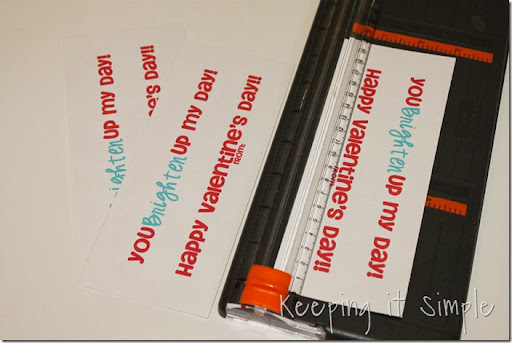 YOU Brighten UP MY DAY!
Happy Valentine's DAY!!
ighten UP MY DAY!
e's DAY!!
YOU Brighten UP MY DAY!
Happy Valentine's DAY!!
FROM:
Keeping it Simple